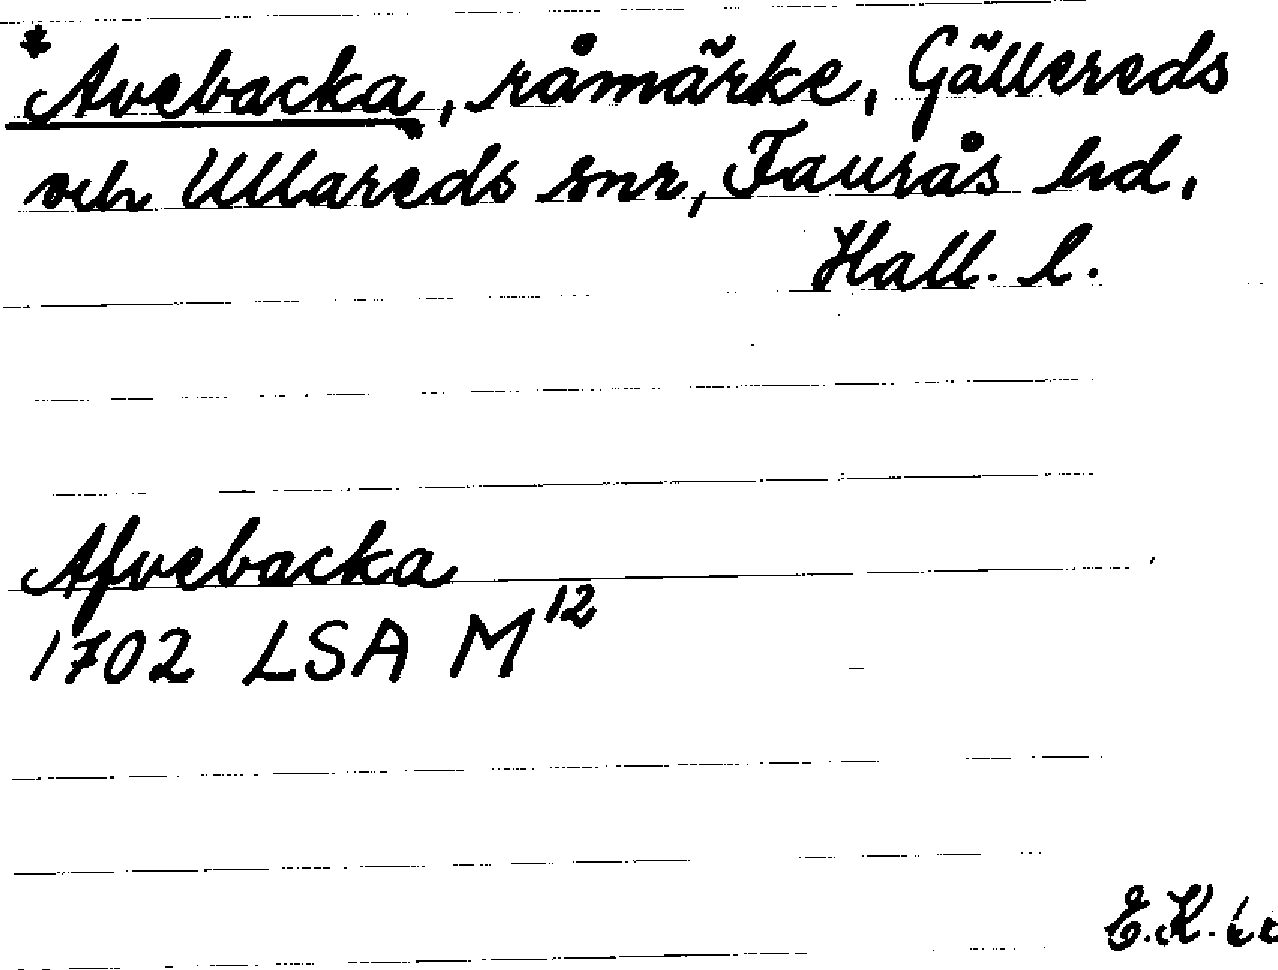 *Avebacka, råmärke, Gällereds
och Ullareds snr, Faurås hd,
Hall. l.
Afvebacka
1702 LSA M 12
E.K.